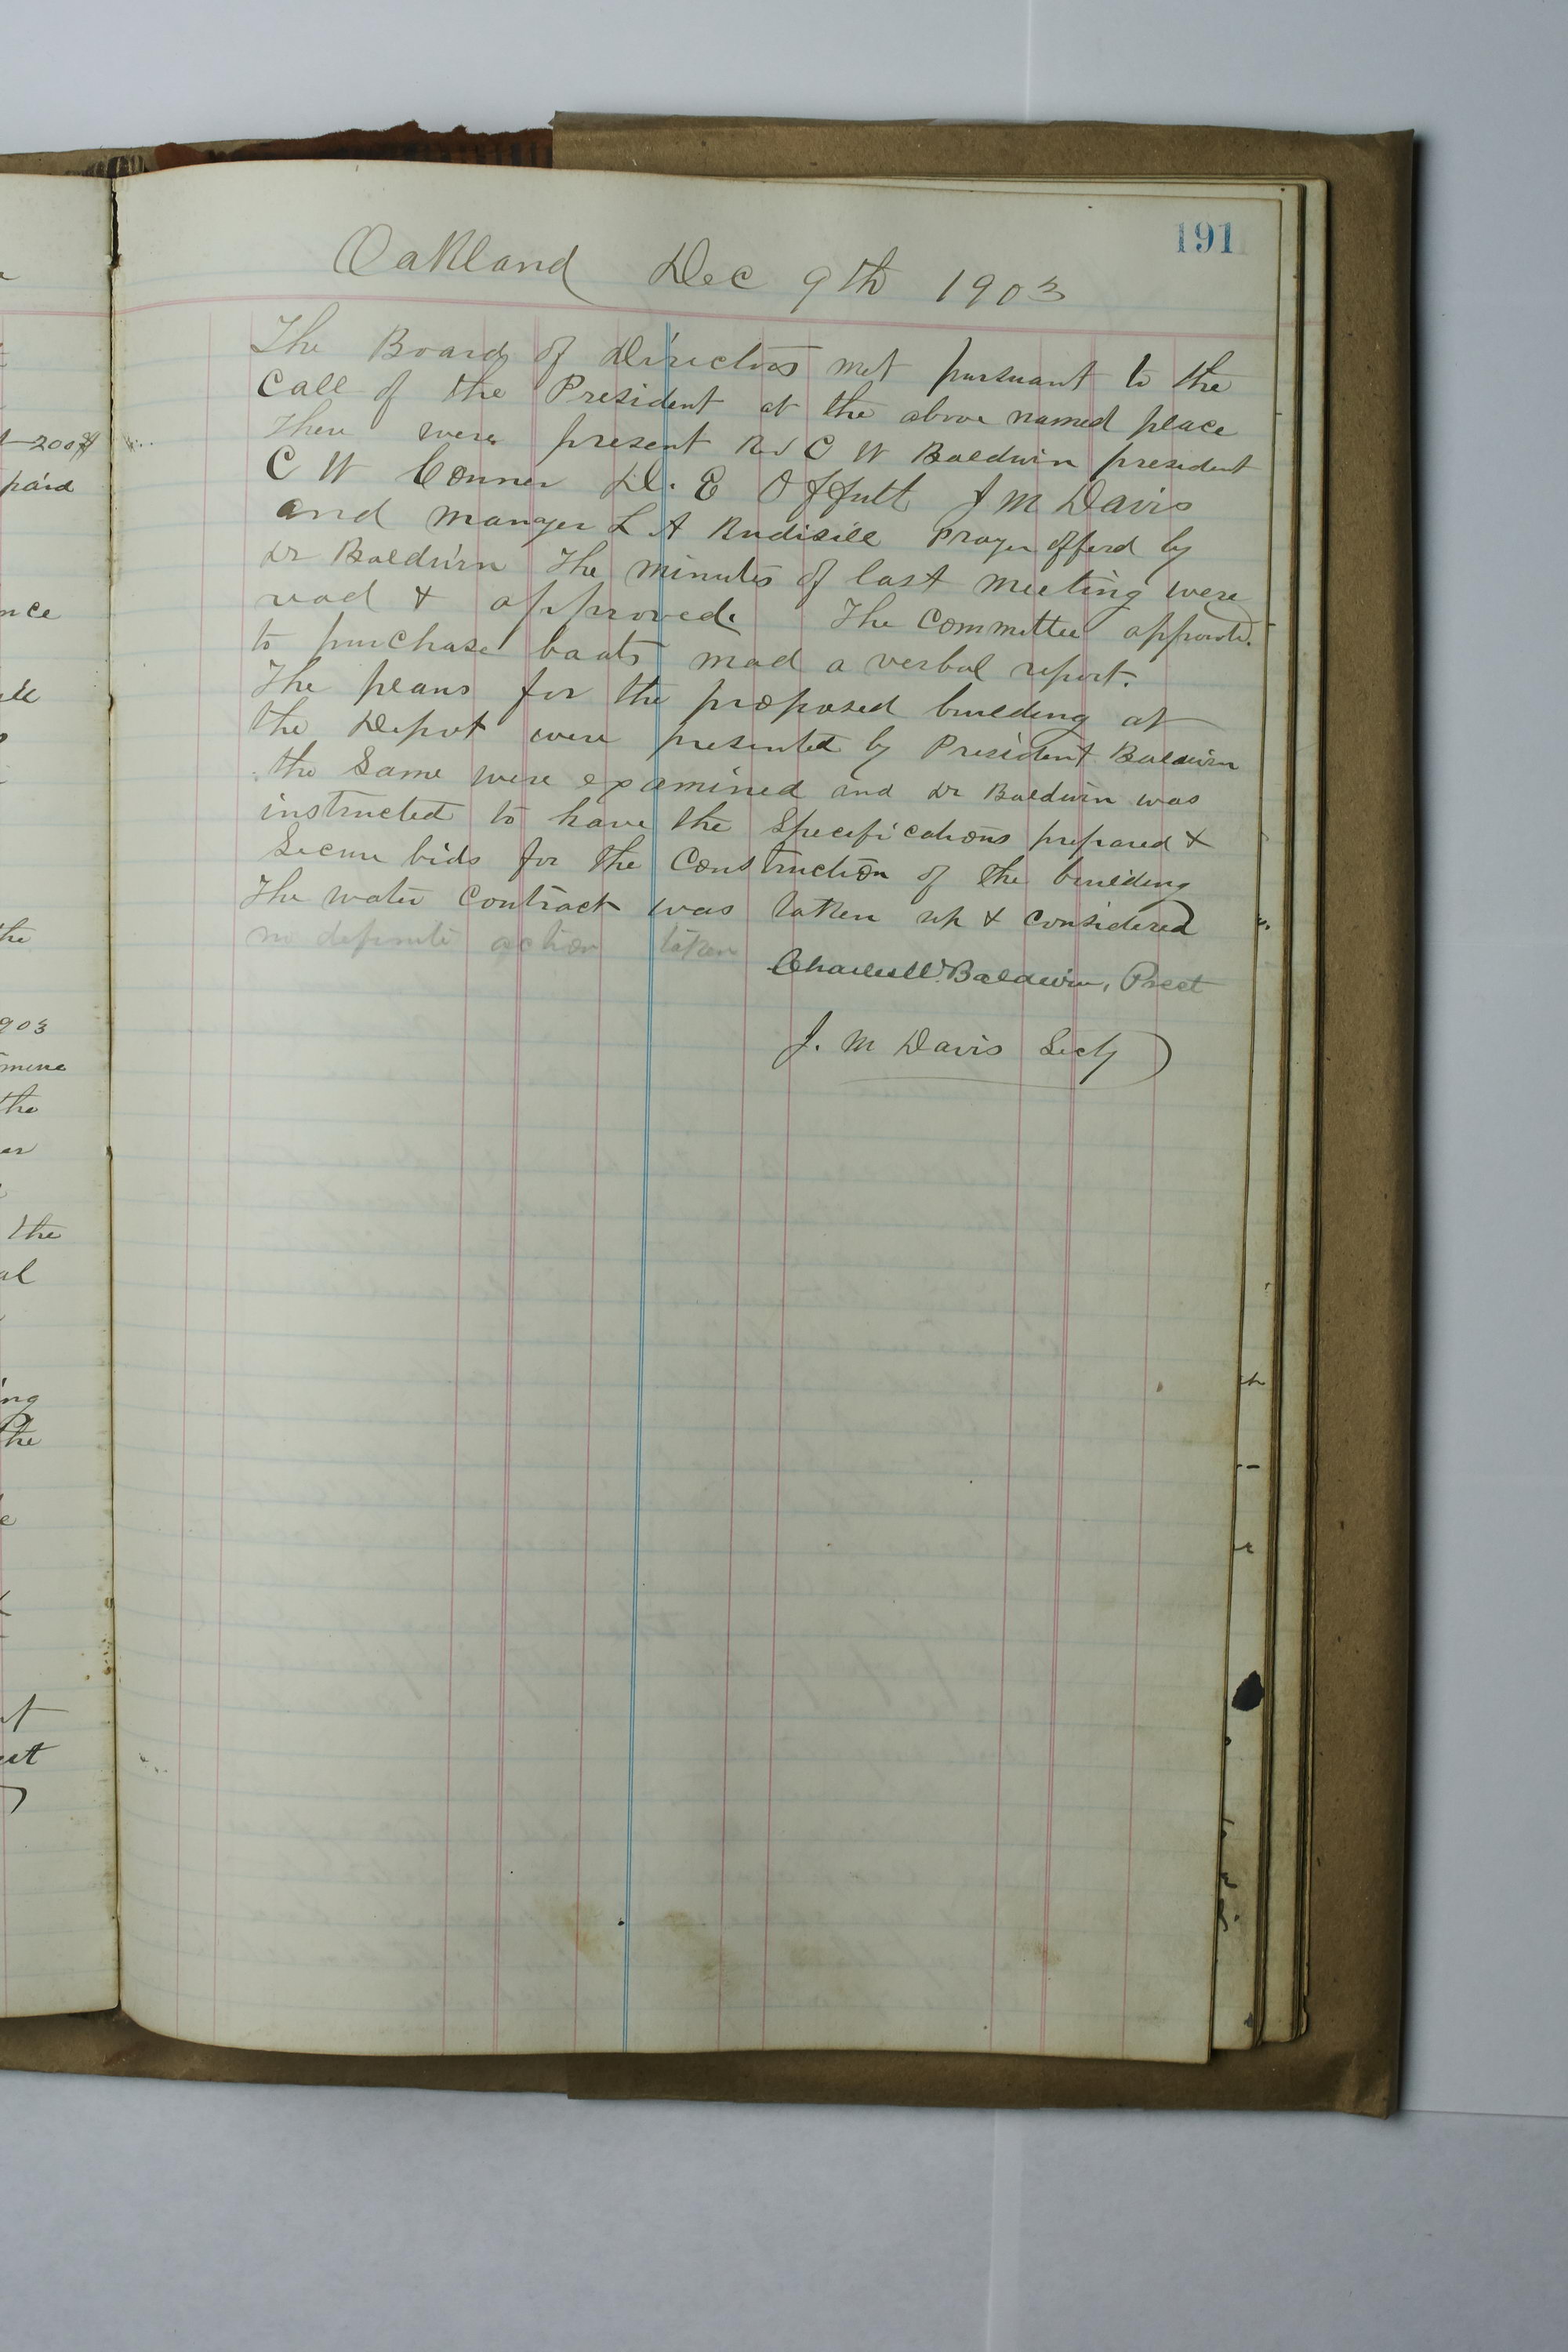 191
Oakland Dec 9th 1903
The Board of Directors met pursuant to the
Call of the President at the above named place
There were present Rev C W Baldwin president
C W Conner D. E Offutt J M Davis
and manager L A Rudisill Prayer offerd by
Dr Baldwin The minutes of last meeting were
read & approved. The Committee appointed
to purchase boats mad a verbal report.
The plans for the proposed building at
the Depot were presented by President Baldwin
the Same were examined and Dr Baldwin was
instructed to have the Specifications prepared &
Secure bids for the Construction of the building
The water Contract was taken up & Considered
no definite action taken
Charles W. Baldwin, Prest
J. M Davis Secty
paid
nce
the
903
the
the
the